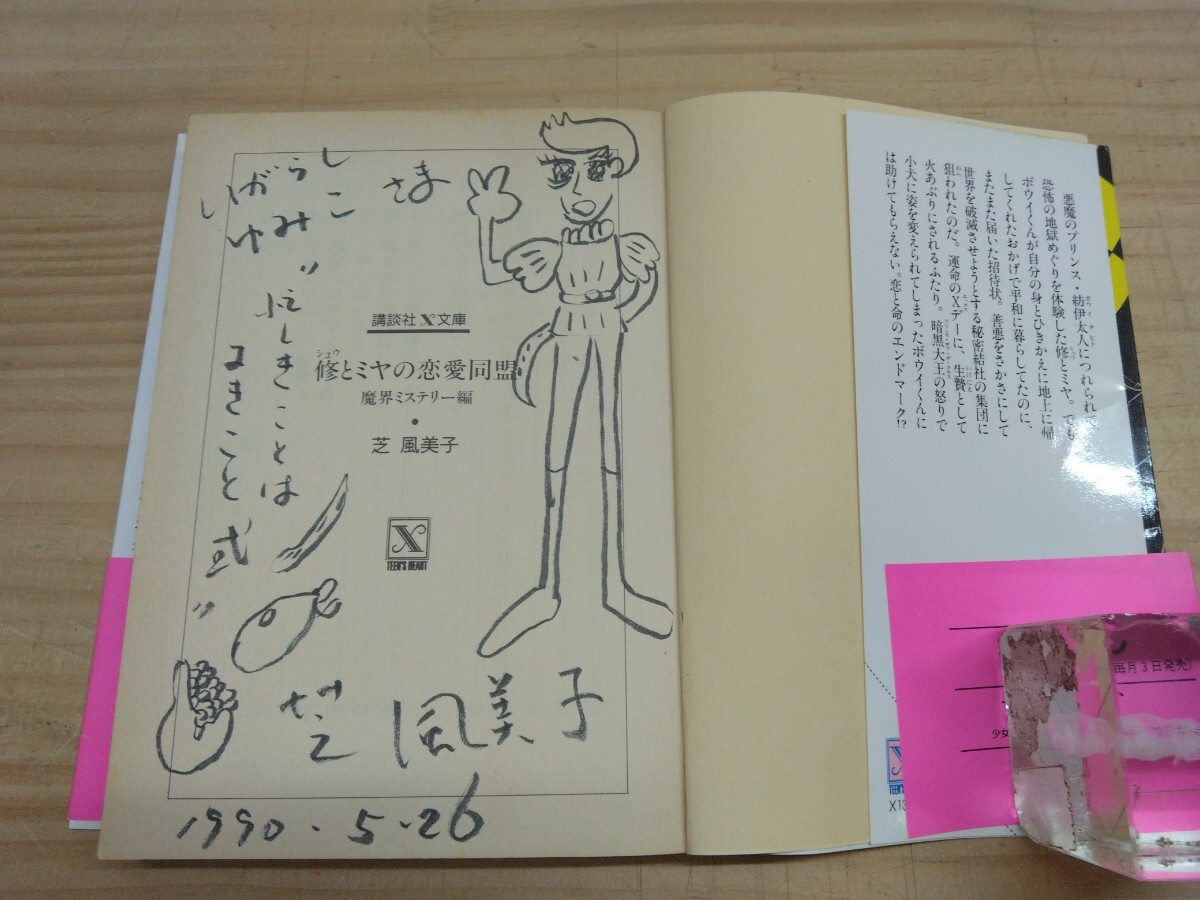 さま
忙しきことは
よきこと 式"
講談社X文庫
シュウ
修とミヤの恋愛同盟
魔界ミステリー編
・
芝 風美子
X
TEEN'S HEART
芝 風美子
1990.5.26
悪魔のプリンス・紡伊太人につれられて
恐怖の地獄めぐりを体験した修とミヤ。でも
ボウイくんが自分の身とひきかえに地上に帰
してくれたおかげで平和に暮らしてたのに、
またまた届いた招待状。善悪をさかさにして
世界を破滅させようとする秘密結社の集団に
狙われたのだ。運命のXデーに、生贄として
火あぶりにされるふたり。暗黒大王の怒りで
小犬に姿を変えられてしまったボウイくんに
は助けてもらえない。恋と命のエンドマーク!?
毎月3日発売
少女
X